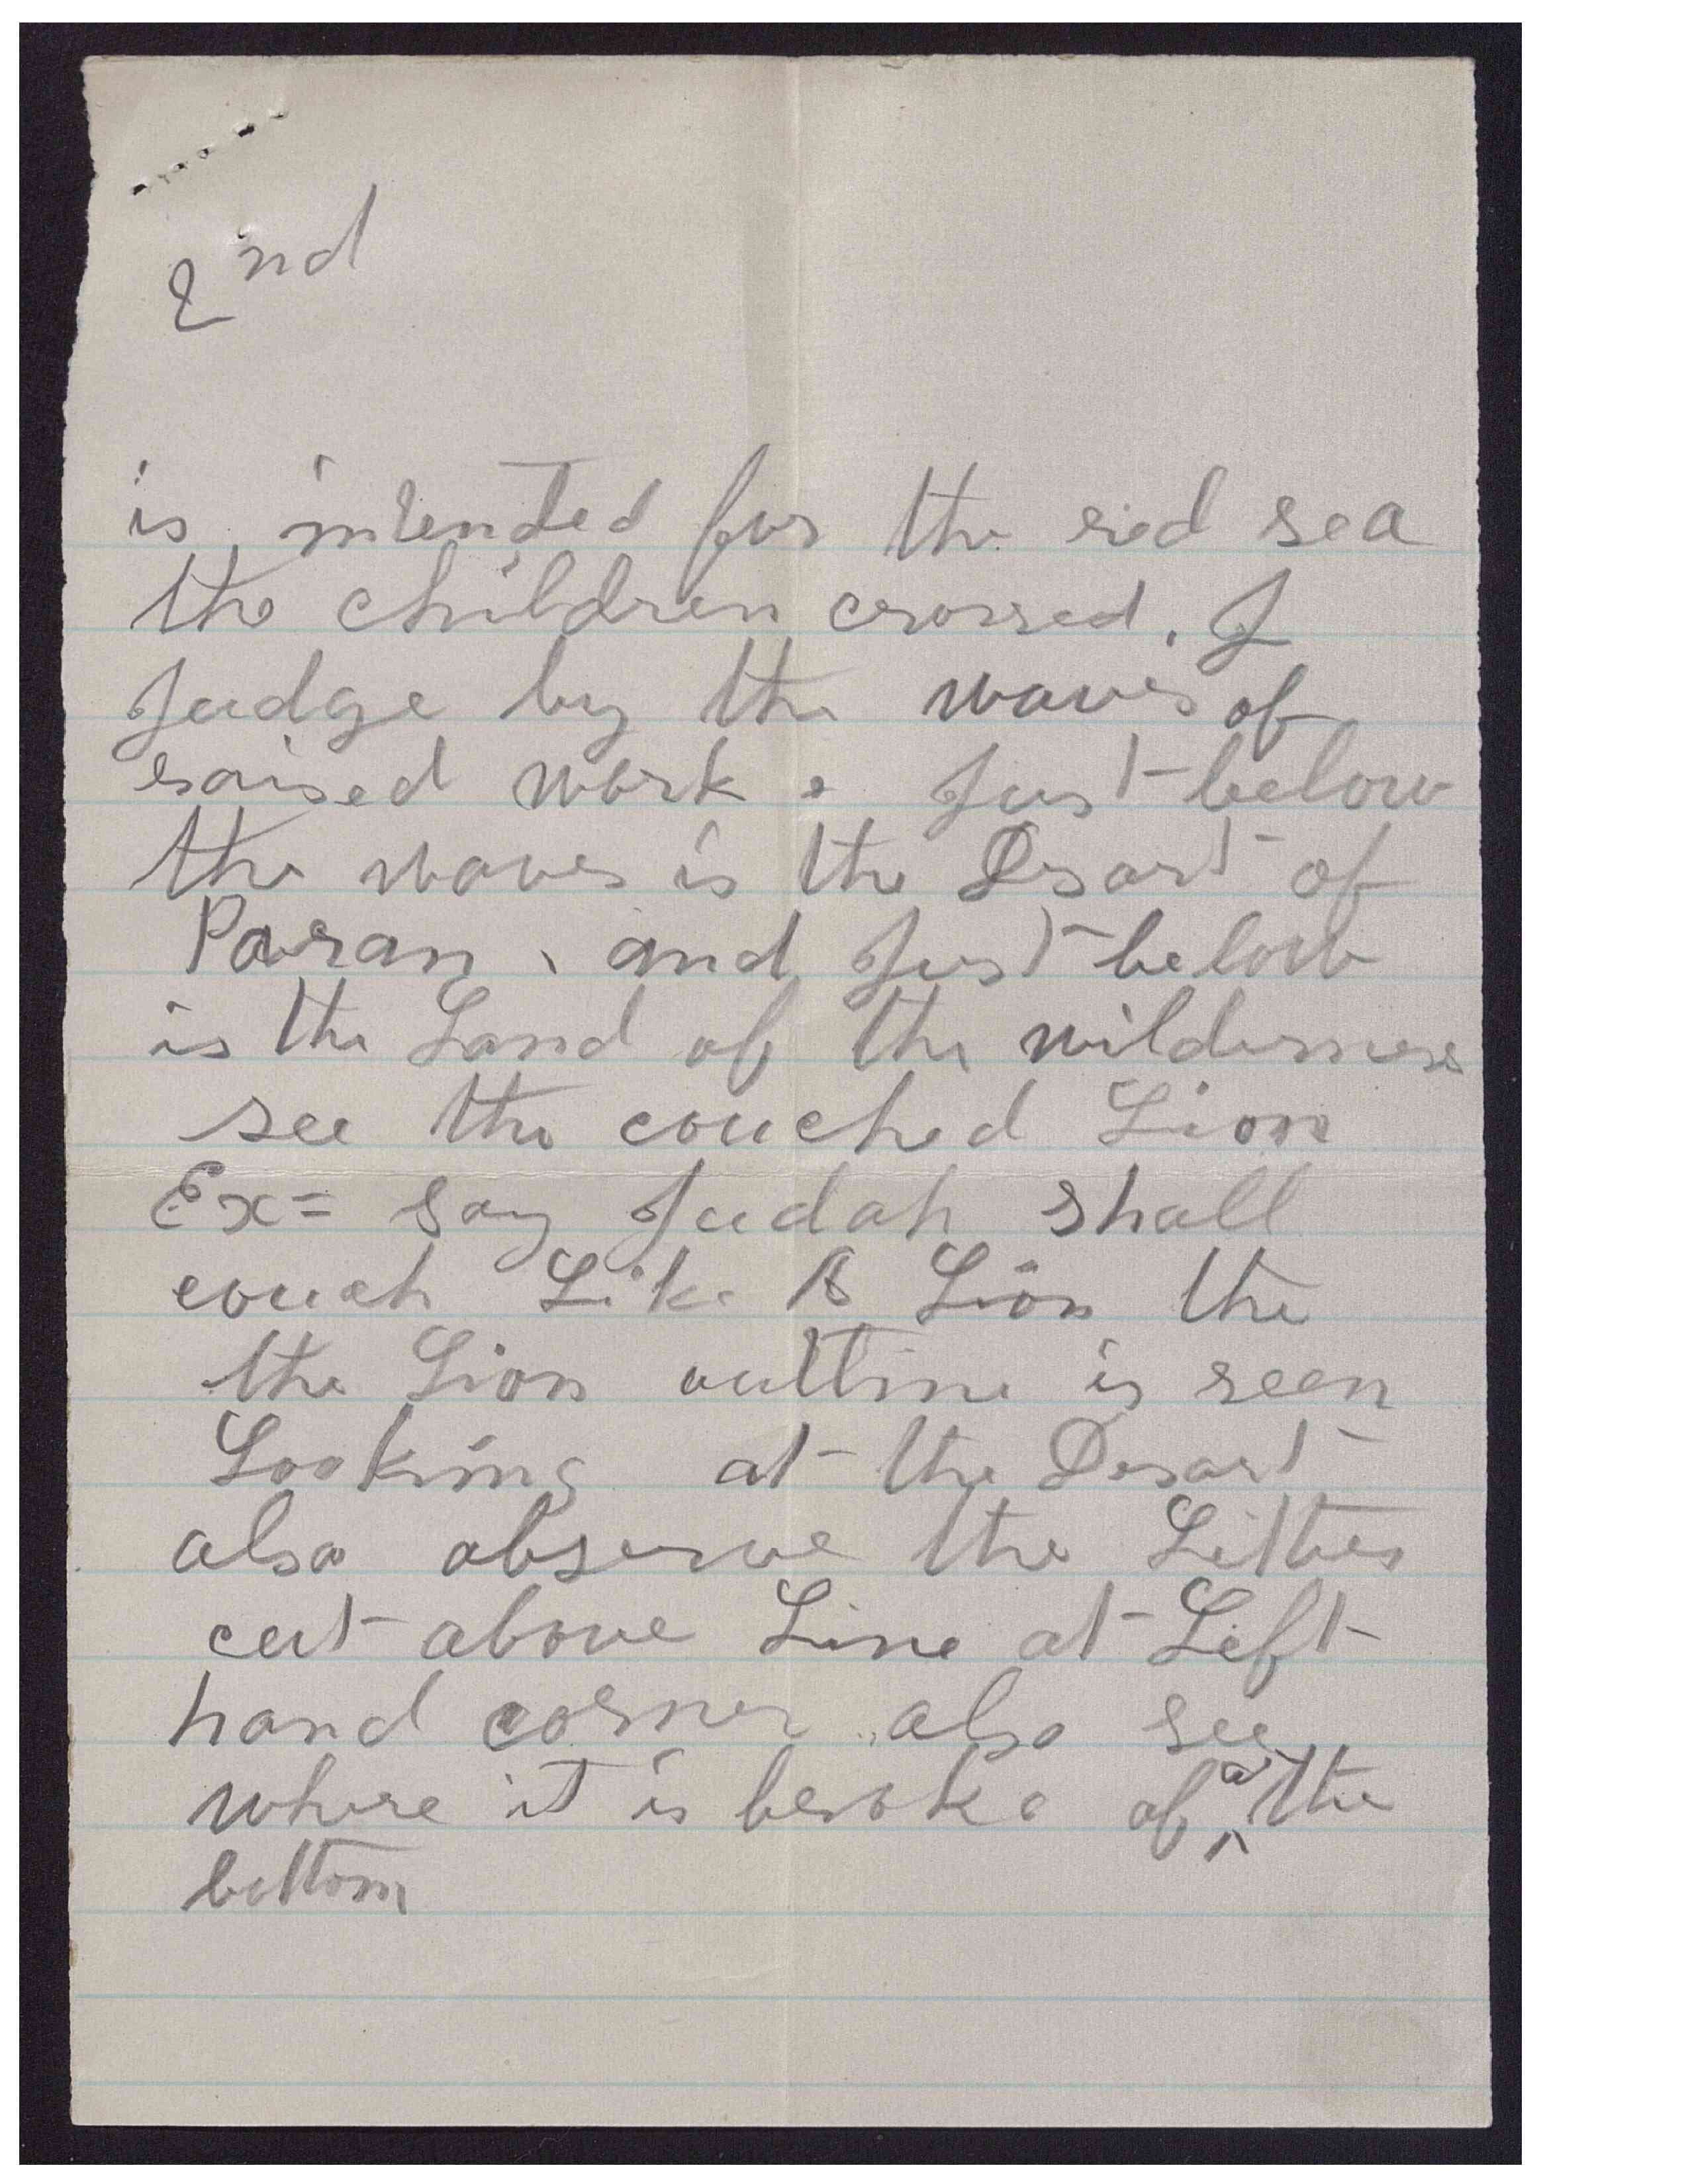 2nd
is intended for the red sea
the children crossed. I
Judge by the waves of
raised work . Just below
the waves is the Desart of
Parran , and Just below
is the Land of the wilderness
see the couched Lion
Ex= say Judah shall
couch Like A Lion the
the Lion outline is seen
Looking at the Desart
also observe the Litters
cut above Line at Left
hand corner also see
where it is broke of at the
bottom